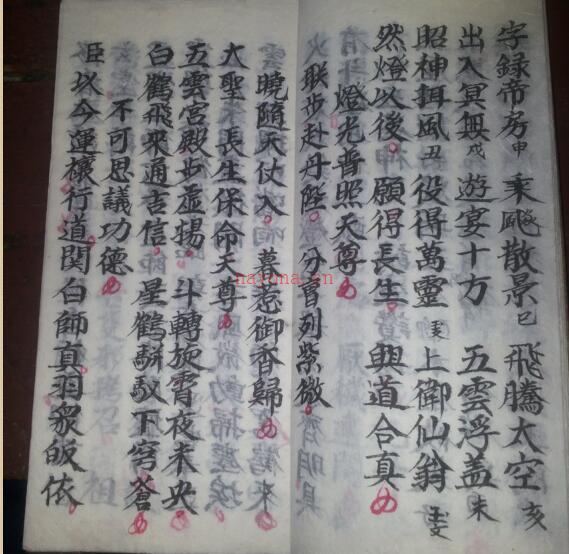 字録帝房申 乘飈散景巳 飛騰太空亥
出入冥無戌 遊宴十方 五雲浮盖未
昭神弭風丑 役得萬靈 上衛仙翁
然燈以後 願得長生 興道合真
燈光普照天尊
聯步赴丹陛 分曹列紫微
曉隨天仗入 暮惹御香歸
大聖長生保命天尊
五雲宮殿步虛揚 斗轉旋霄夜未央
白鶴飛來通吉信 星鶴駢馭下穹蒼
不可思議功德
臣以今運櫰行道関白師真羽衆皈依
nayona.cn